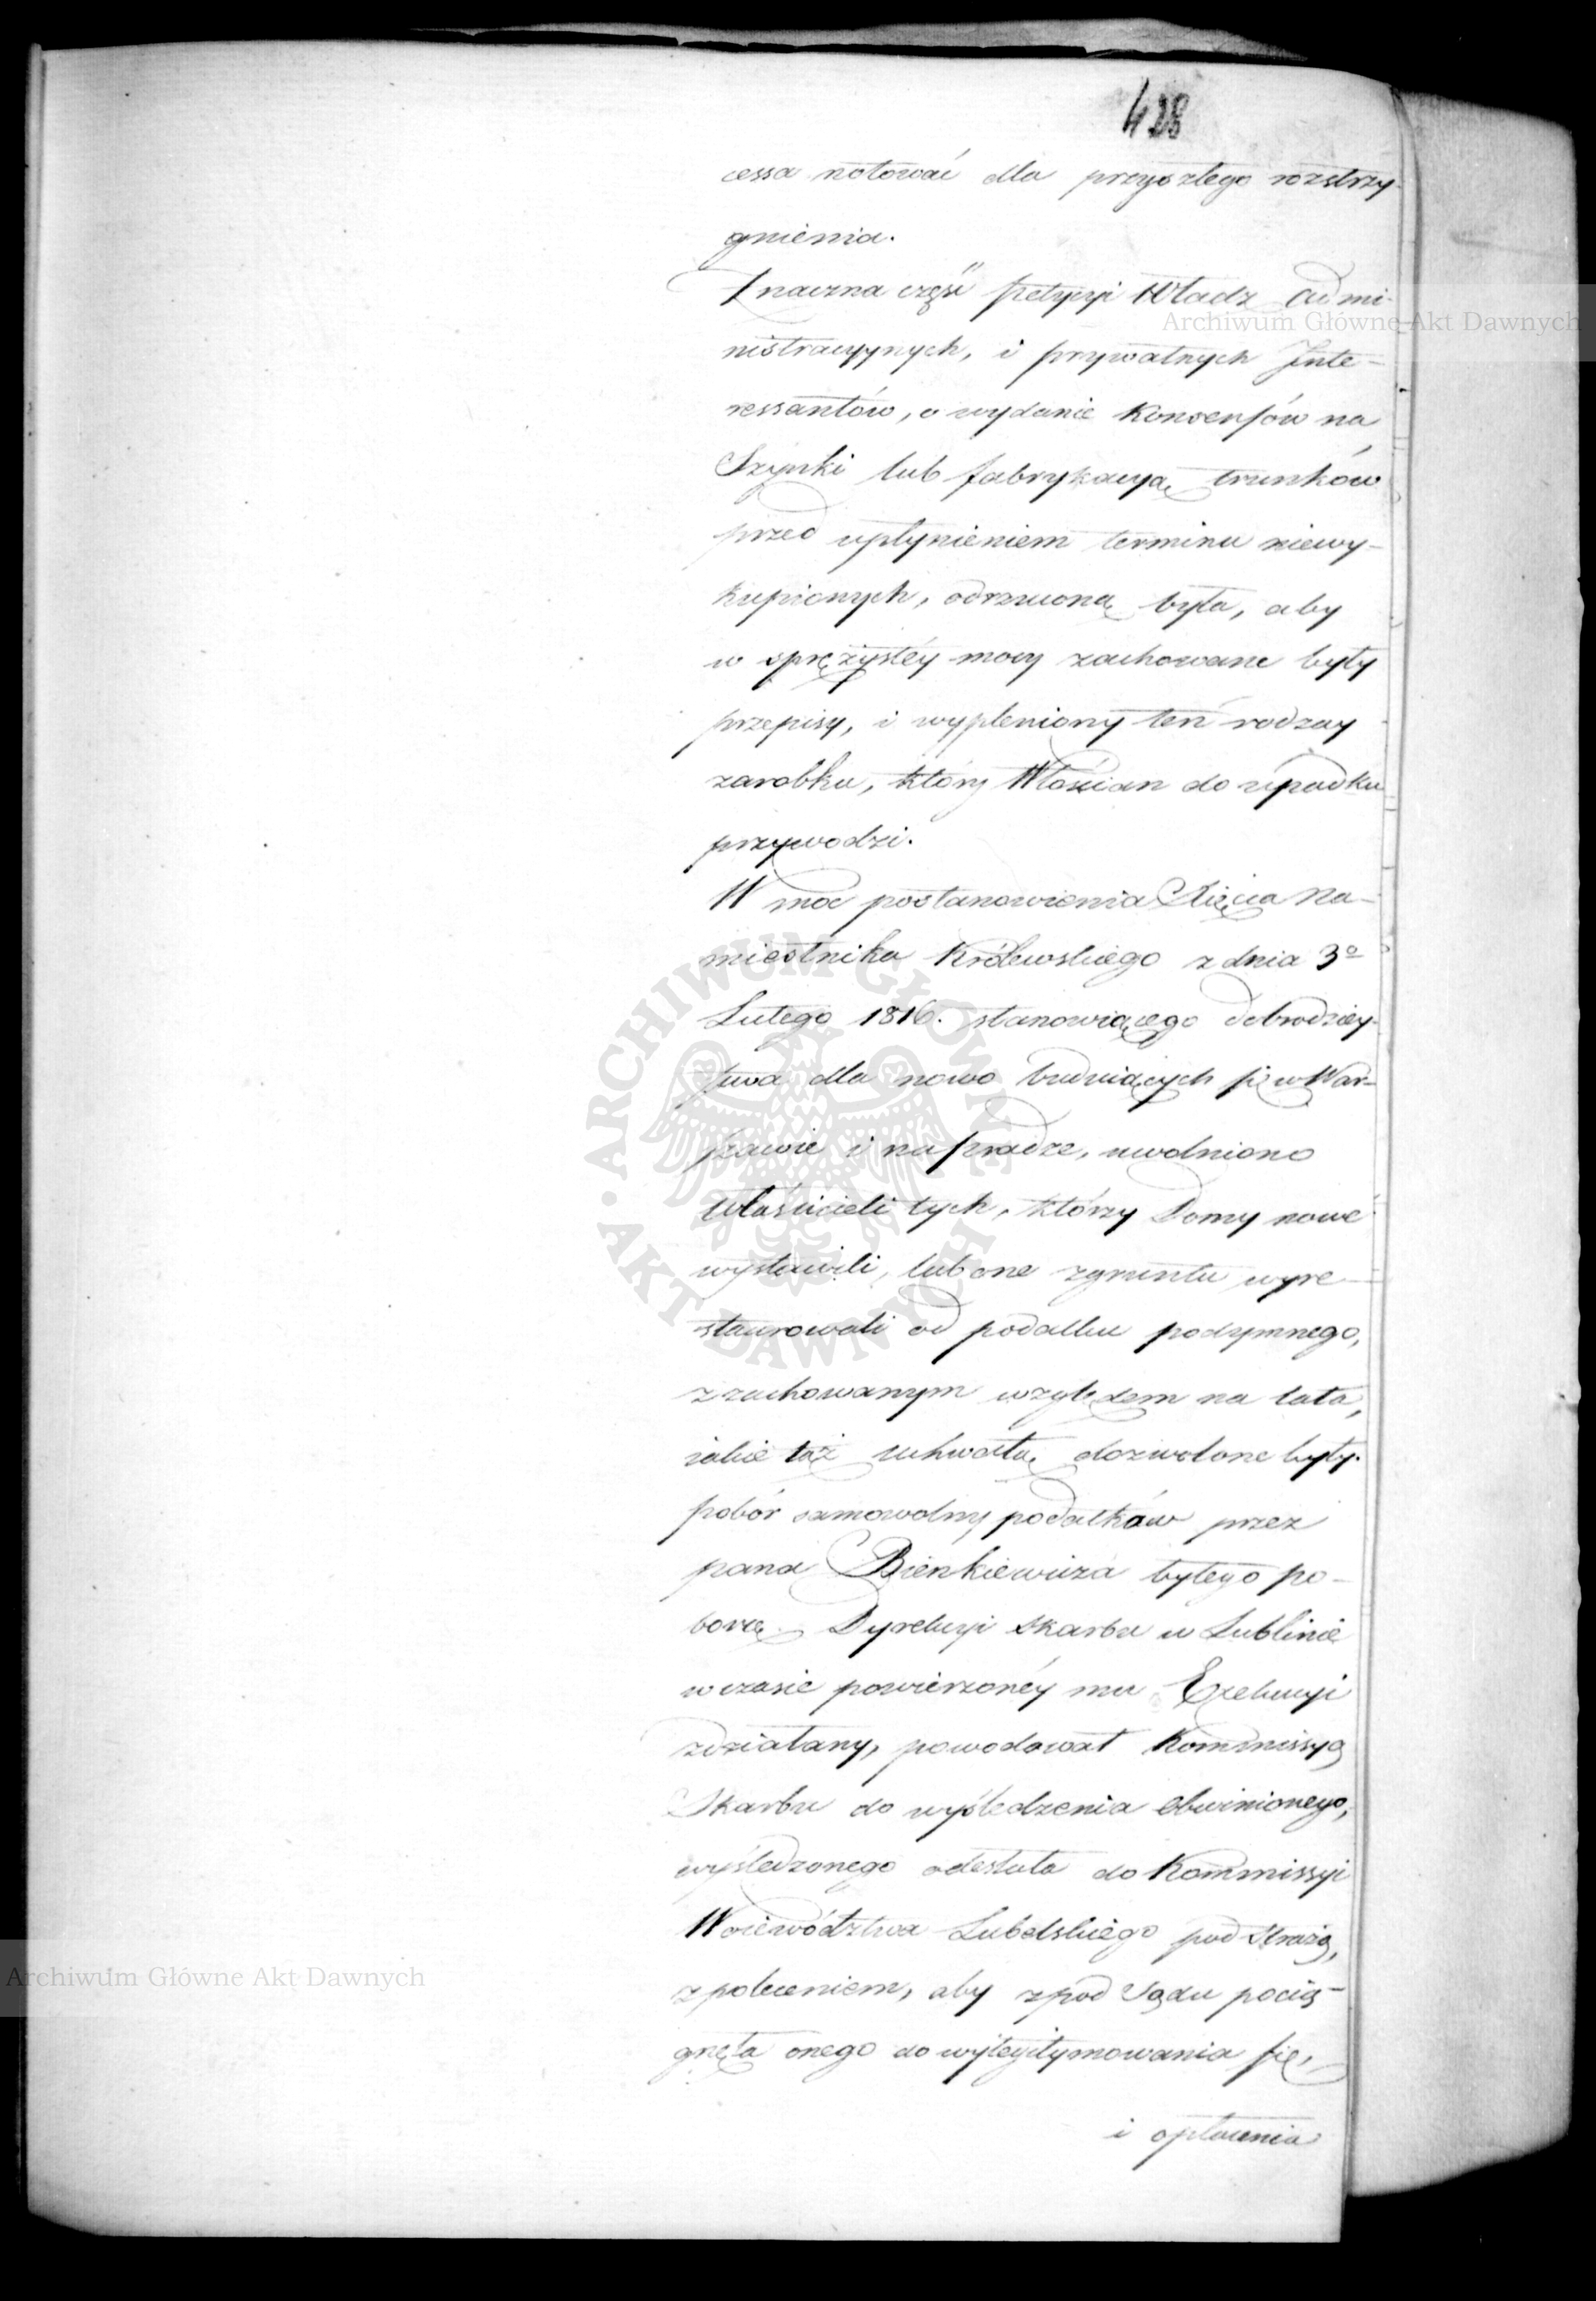 428
cessa notować dla przyszłego rozstrzy-
gnienia.
Znaczna część petycyi Władz admi-
nistracyynych, i prywatnych Inte-
ressantów, o wydanie Konsensów na
Szynki lub fabrykacyą trunków
przed upłynieniem terminu niewy-
kupionych, odrzuconą była, aby
w sprężystéy mocy zachowane były
przepisy, i wypleniony ten rodzay
zarobku, który Włościan do upadku
przywodzi.
W moc postanowienia Xięcia Na-
miestnika Królewskiego z dnia 3º
Lutego 1816. stanowiącego dobrodziey-
stwa dla nowo buduiących się w War-
szawie i na Pradze, uwolniono
właścicieli tych, którzy Domy nowe
wystawili, lub one z gruntu wyre-
staurowali od podatku podymnego,
z zachowanym względem na lata,
iakie taż uchwałą dozwolone były.
Pobór samowolny podatków przez
pana Bienkiewicza byłego po-
borcę Dyrekcyi Skarbu w Lublinie
w czasie powierzonéy mu Exekucyi
zdziałany, powodował Kommissyą
Skarbu do wyśledzenia obwinionego,
wyśledzonego odesłała do Kommissyi
Woiewództwa Lubelskiego pod Strażą,
z poleceniem, aby z pod Sądu pocią-
gnęła onego do wylegitymowania się,
i opłacenia
Archiwum Główne Akt Dawnych
Archiwum Główne Akt Dawnych
ARCHIWUM GŁÓWNE · AKT DAWNYCH